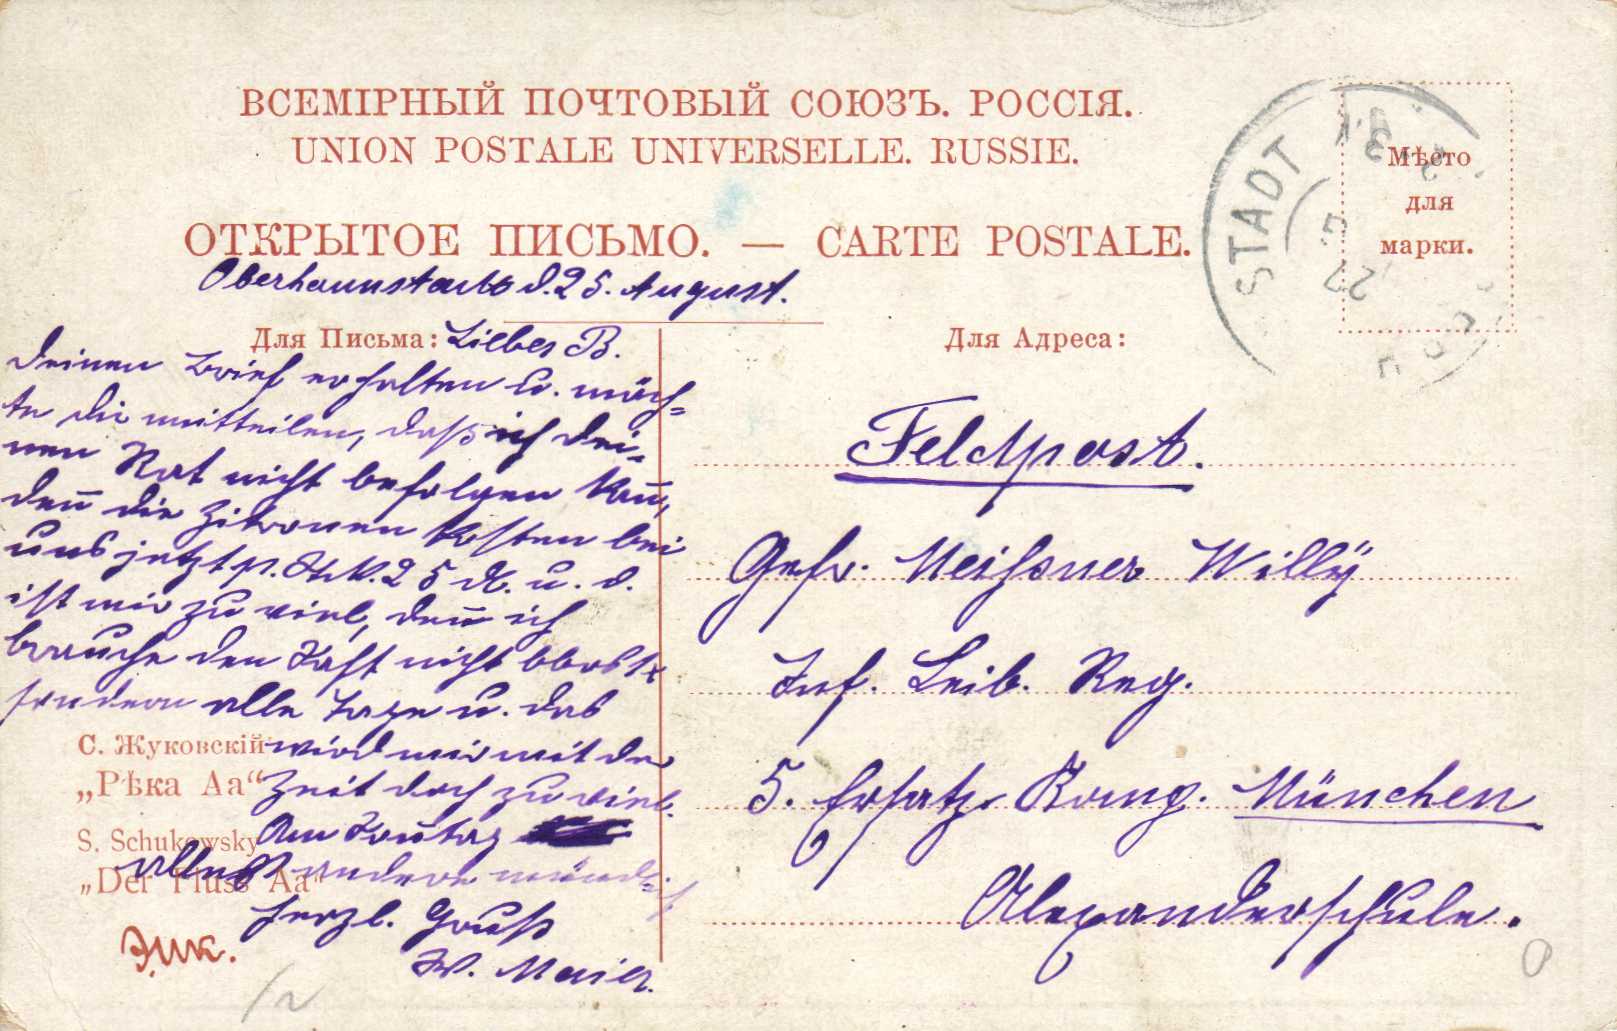 ВСЕМІРНЫЙ ПОЧТОВЫЙ СОЮЗЪ. РОССІЯ.
UNION POSTALE UNIVERSELLE. RUSSIE.
ОТКРЫТОЕ ПИСЬМО. — CARTE POSTALE.
Мѣсто
для
марки.
STADT
d. 25. August.
Для Письма:
Liebes B.
Deinen Brief erhalten u. möch-
te dir mitteilen, daß ich dei-
nen Rat nicht befolgen kan̄,
den̄ die Zitronen kosten bei
uns jetzt p. Stck. 25 u. d.
ist mir zu viel, den̄ ich
brauche den Saft nicht
sondern alle Tage u. das
wird mir mit der
Zeit doch zu viel.
Am Son̄tag
alles andere mündlich
herzl. Gruß
W. Maier.
С. Жуковскій
„Рѣка Аа“
S. Schukowsky
„Der Fluss Aa“
Эик.
Для Адреса:
Feldpost.
Gefr. Meißner Willÿ
Inf. Leib. Reg.
5. Ersatz. Komp. München
Alexanderschule.